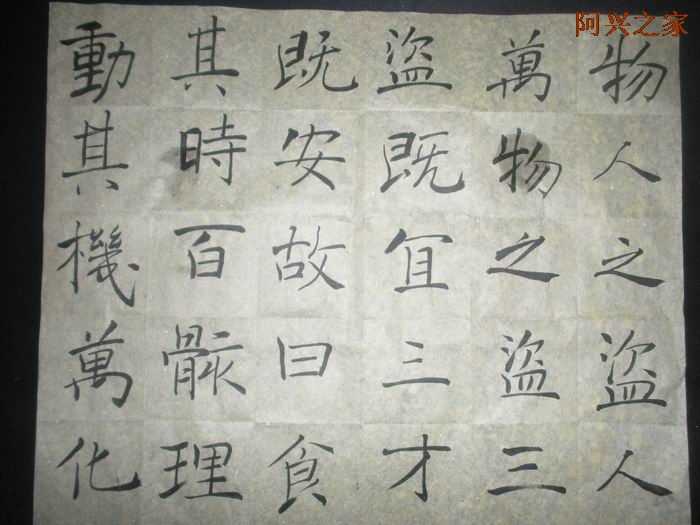 阿兴之家
物人之盜人
萬物之盜三
盜既冝三才
既安故曰食
其時百骸理
動其機萬化